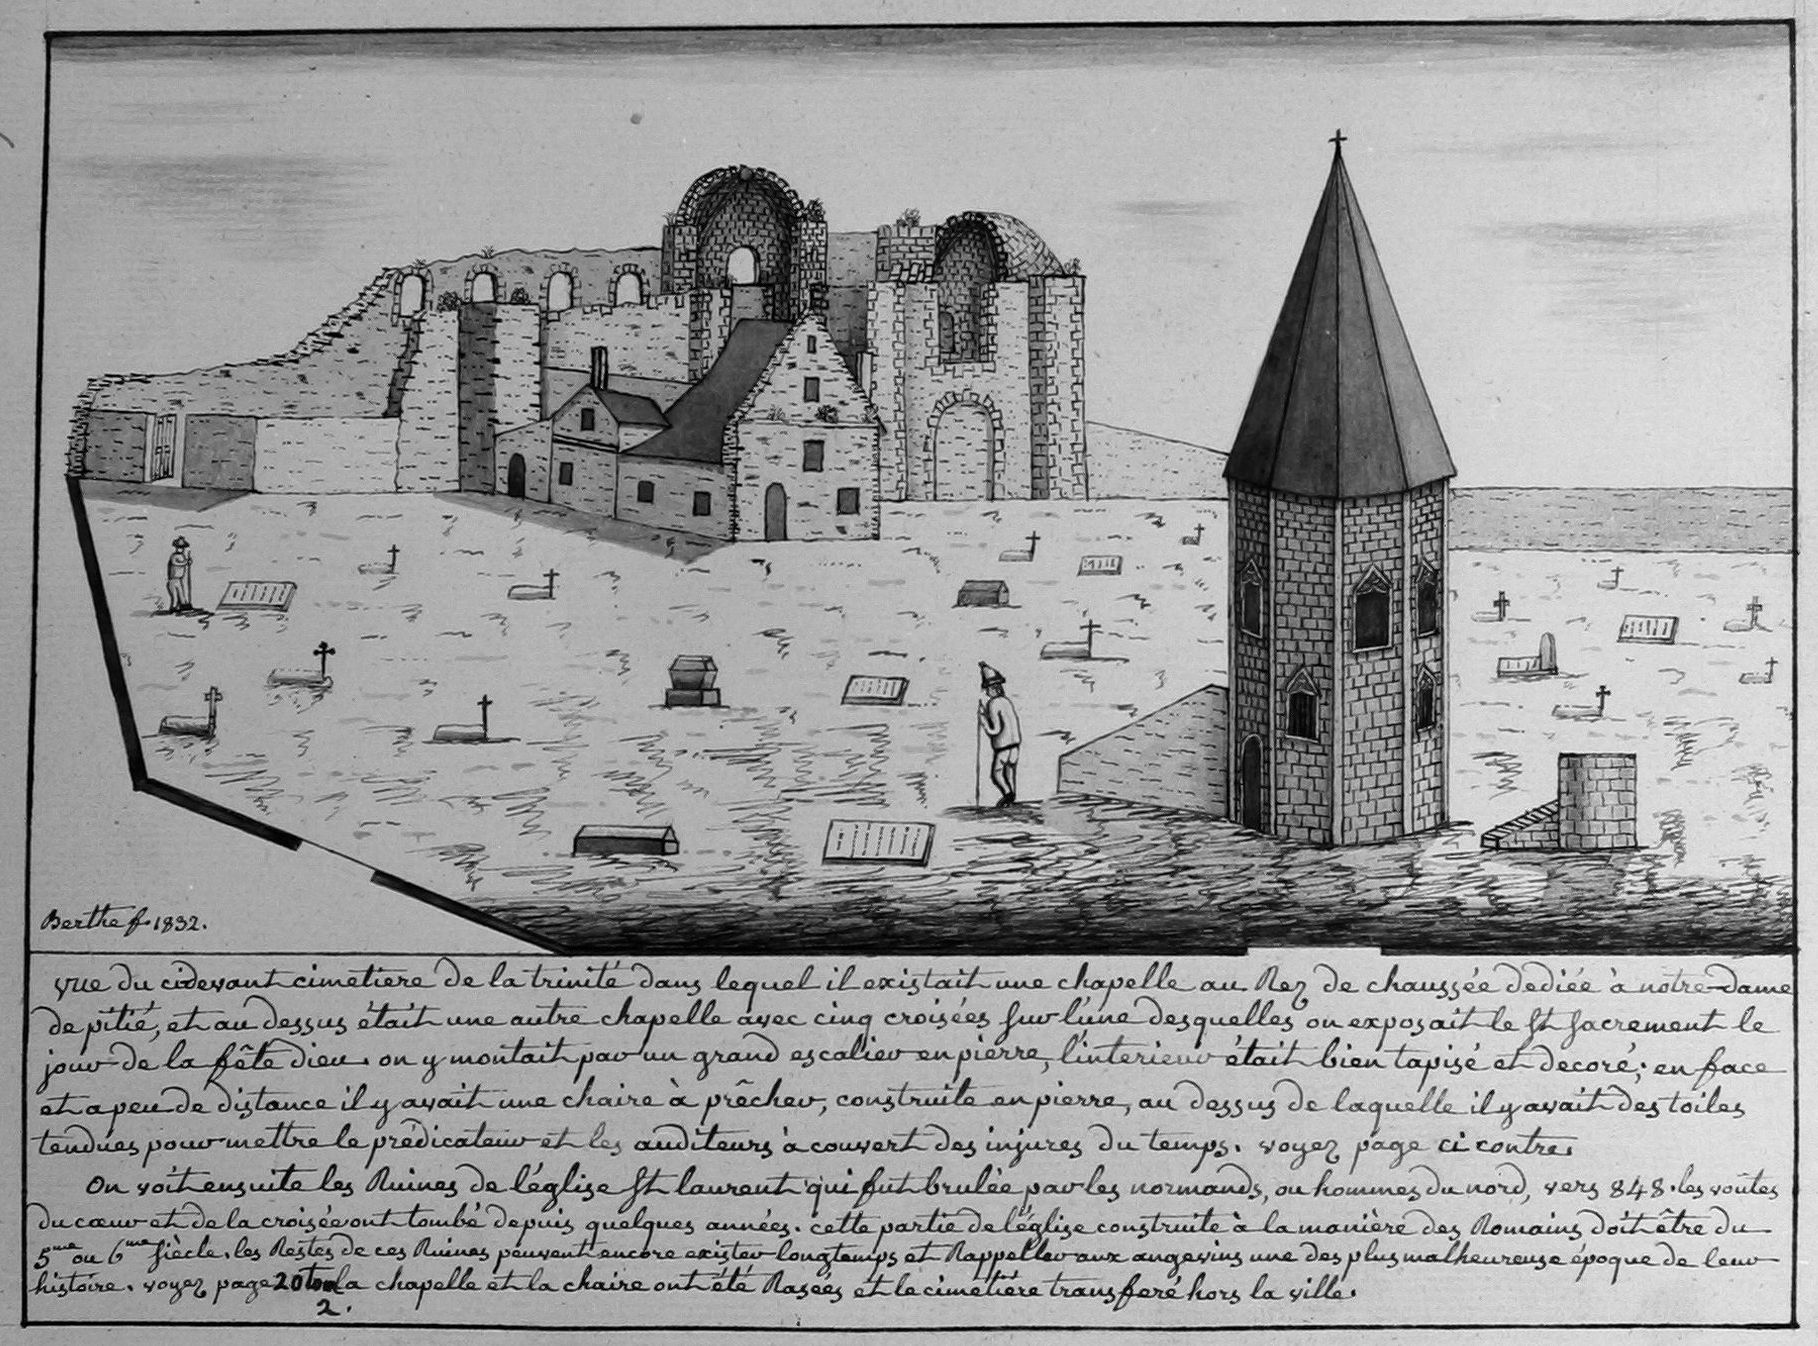 Berthe f. 1832.
vue du cidevant cimetiere de la trinité dans lequel il existait une chapelle au Rez de chaussée dediée à notre-dame
de pitié, et au dessus était une autre chapelle avec cinq croisées sur l'une desquelles on exposait le St sacrement le
jour de la fête dieu. on y montait par un grand escalier en pierre, l'interieur était bien tapisé et decoré; en face
et a peu de distance il y avait une chaire à prêcher, construite en pierre, au dessus de laquelle il y avait des toiles
tendues pour mettre le prédicateur et les auditeurs à couvert des injures du temps. voyez page ci contre.
On voit ensuite les Ruines de l'église St laurent qui fut brulée par les normands, ou hommes du nord, vers 848. les voûtes
du cœur et de la croisée ont tombé depuis quelques années. cette partie de l'église construite à la manière des Romains doit être du
5me ou 6me siècle. les Restes de ces Ruines peuvent encore exister longtemps et Rappeller aux angevins une des plus malheureuse époque de leur
histoire. voyez page la chapelle et la chaire ont été Rasées et le cimetière transferé hors la ville.
2.